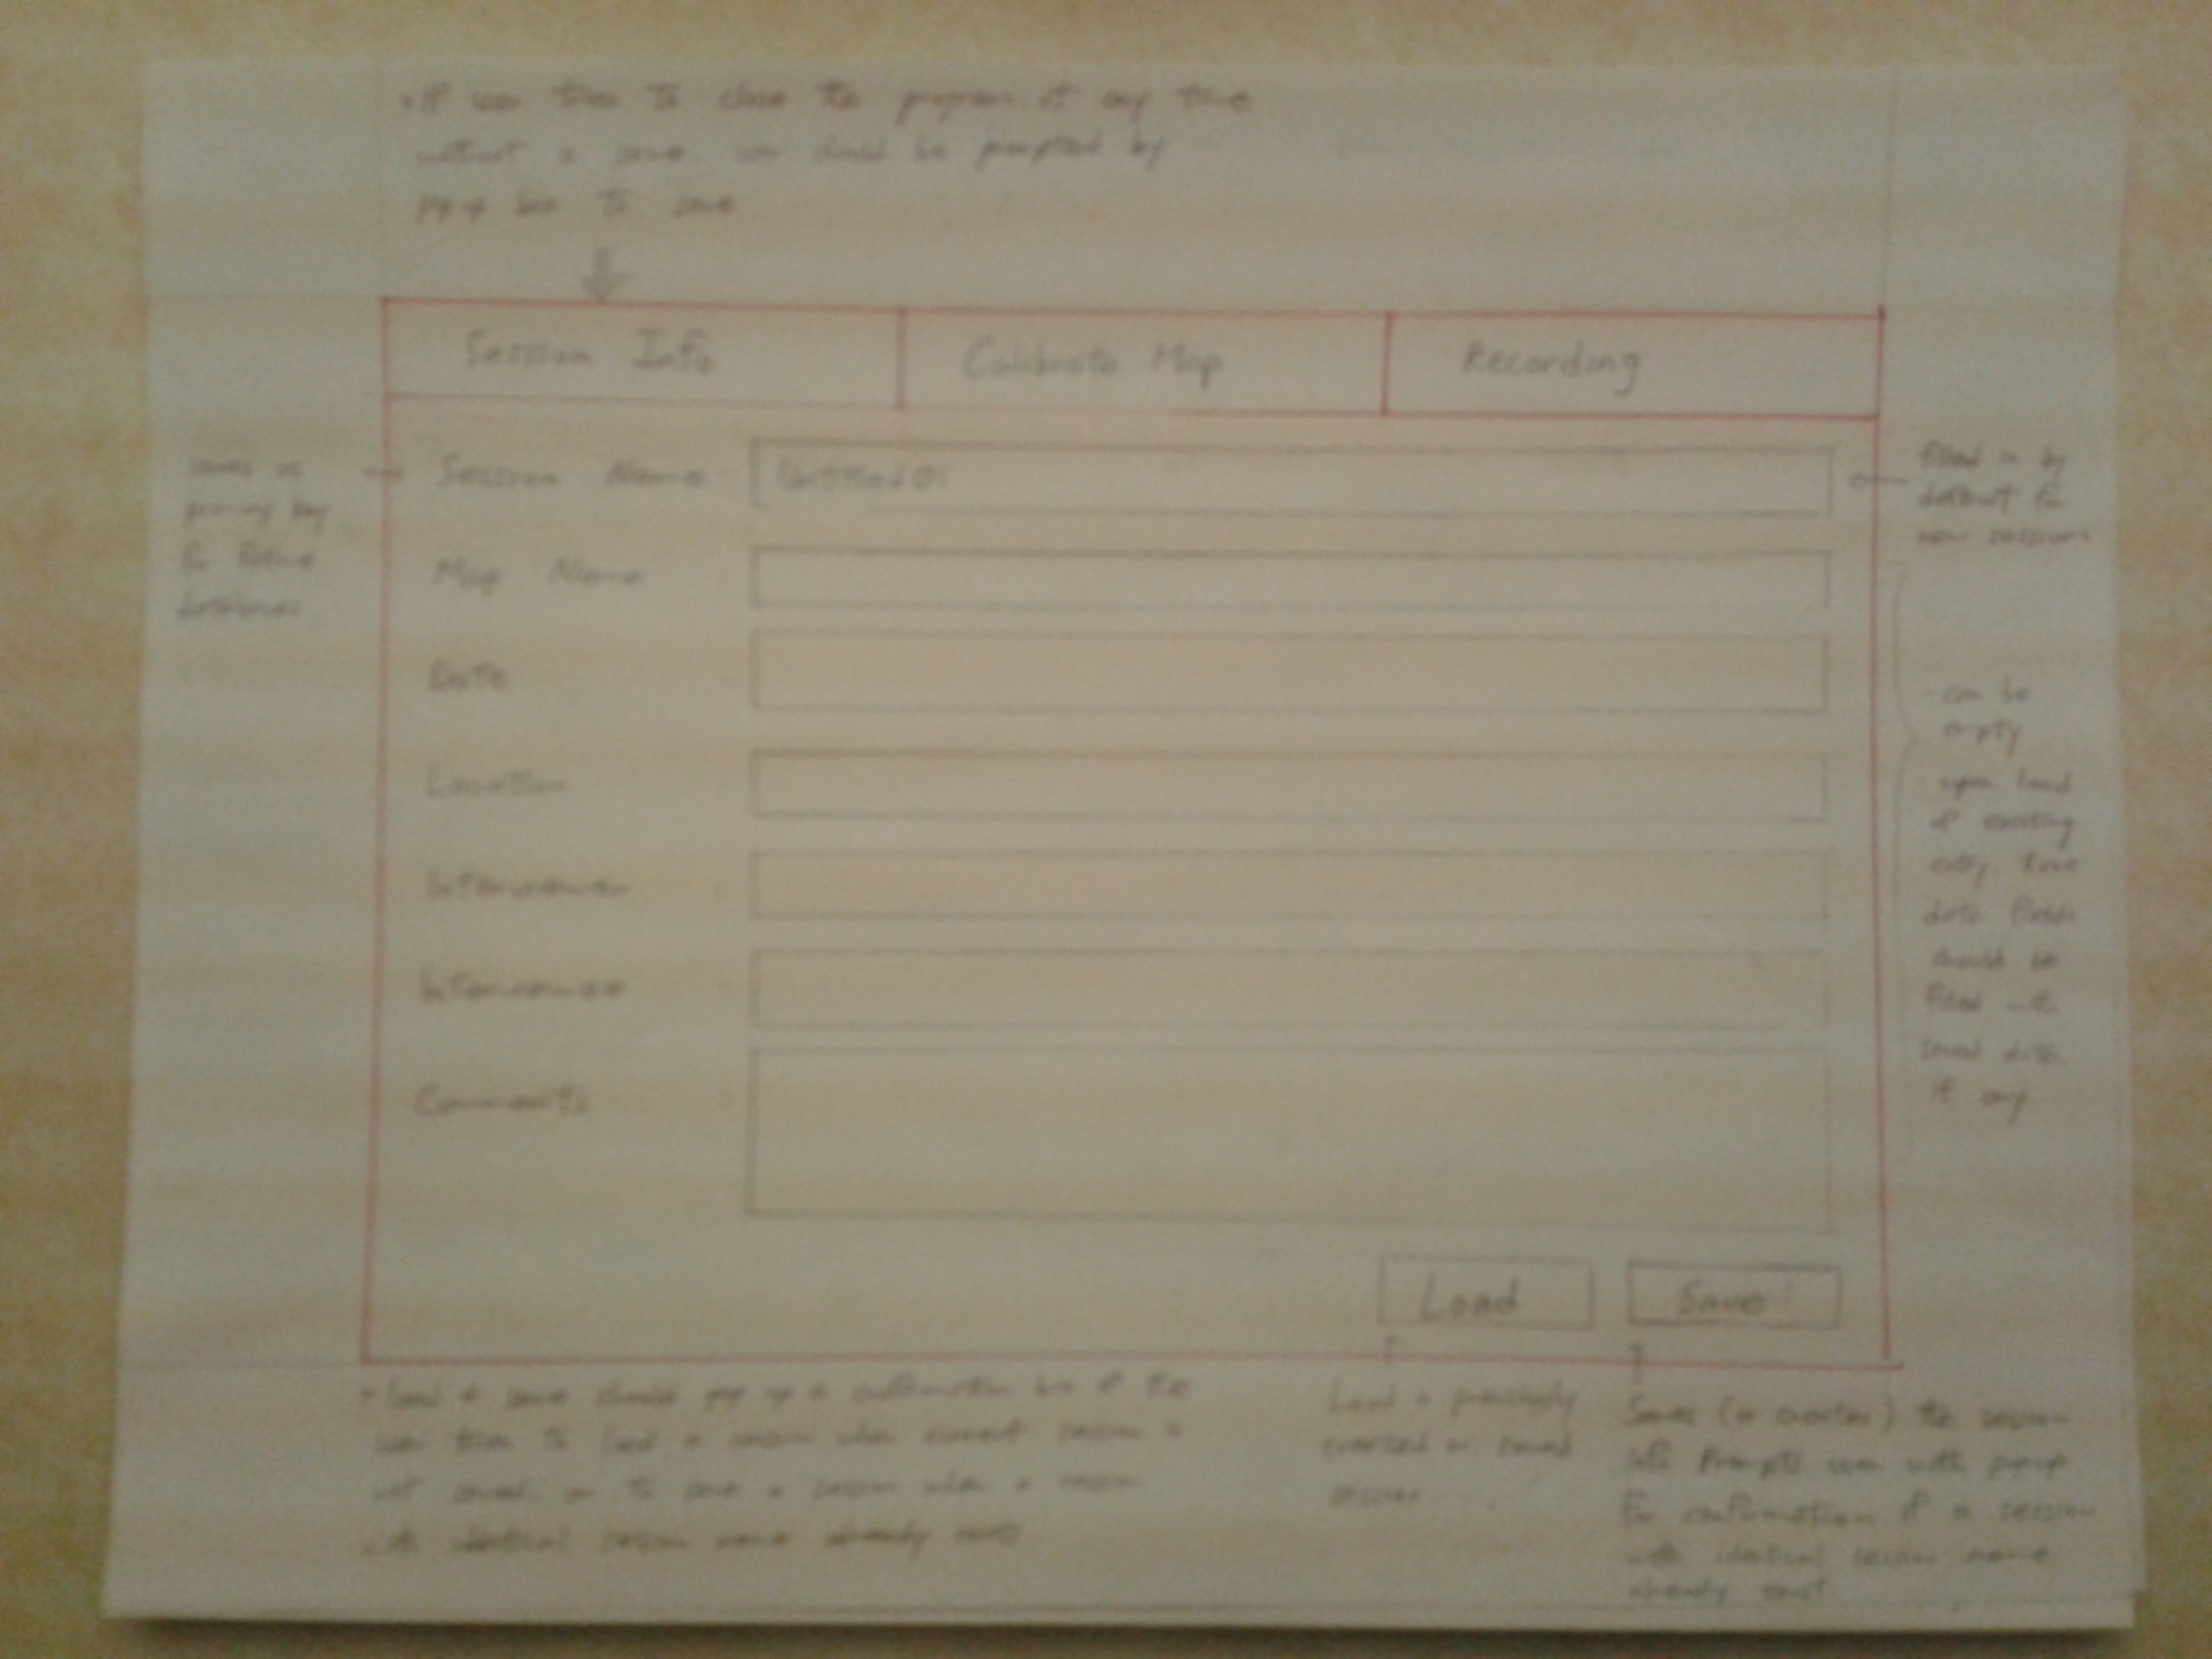 • If user tries to close the program at any time
without a save, user should be prompted by
pop up box to save
Session Info
Calibrate Map
Recording
serves as
primary key
for future
databases
Session Name
Untitled 01
filled in by
default for
new sessions
Map Name
Date
Location
Interviewer
Interviewee
Comments
- can be
empty
- upon load
of existing
entry, these
data fields
should be
filled with
saved data
if any
Load
Save
• load & save should pop up a confirmation box if the
user tries to load a session when current session is
not saved, or to save a session when a session
with identical session name already exists
Load a previously
created or saved
session
Saves (or creates) the session
info. Prompts user with popup
for confirmation if a session
with identical session name
already exist.